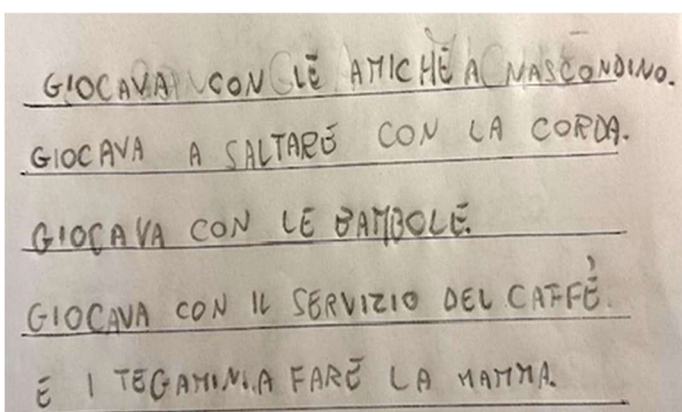 GIOCAVA CON LE AMICHE A NASCONDINO.
GIOCAVA A SALTARE CON LA CORDA.
GIOCAVA CON LE BAMBOLE.
GIOCAVA CON IL SERVIZIO DEL CAFFÈ.
E I TEGAMINI.A FARE LA MAMMA.